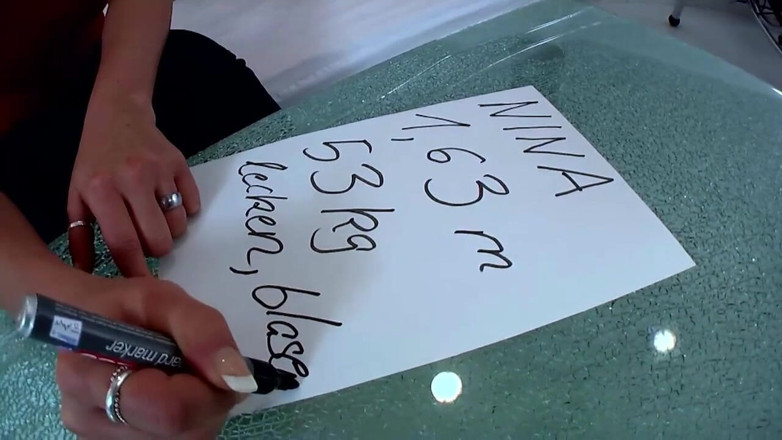 NINA
1,63 m
53 kg
lecken, blase
ard marker